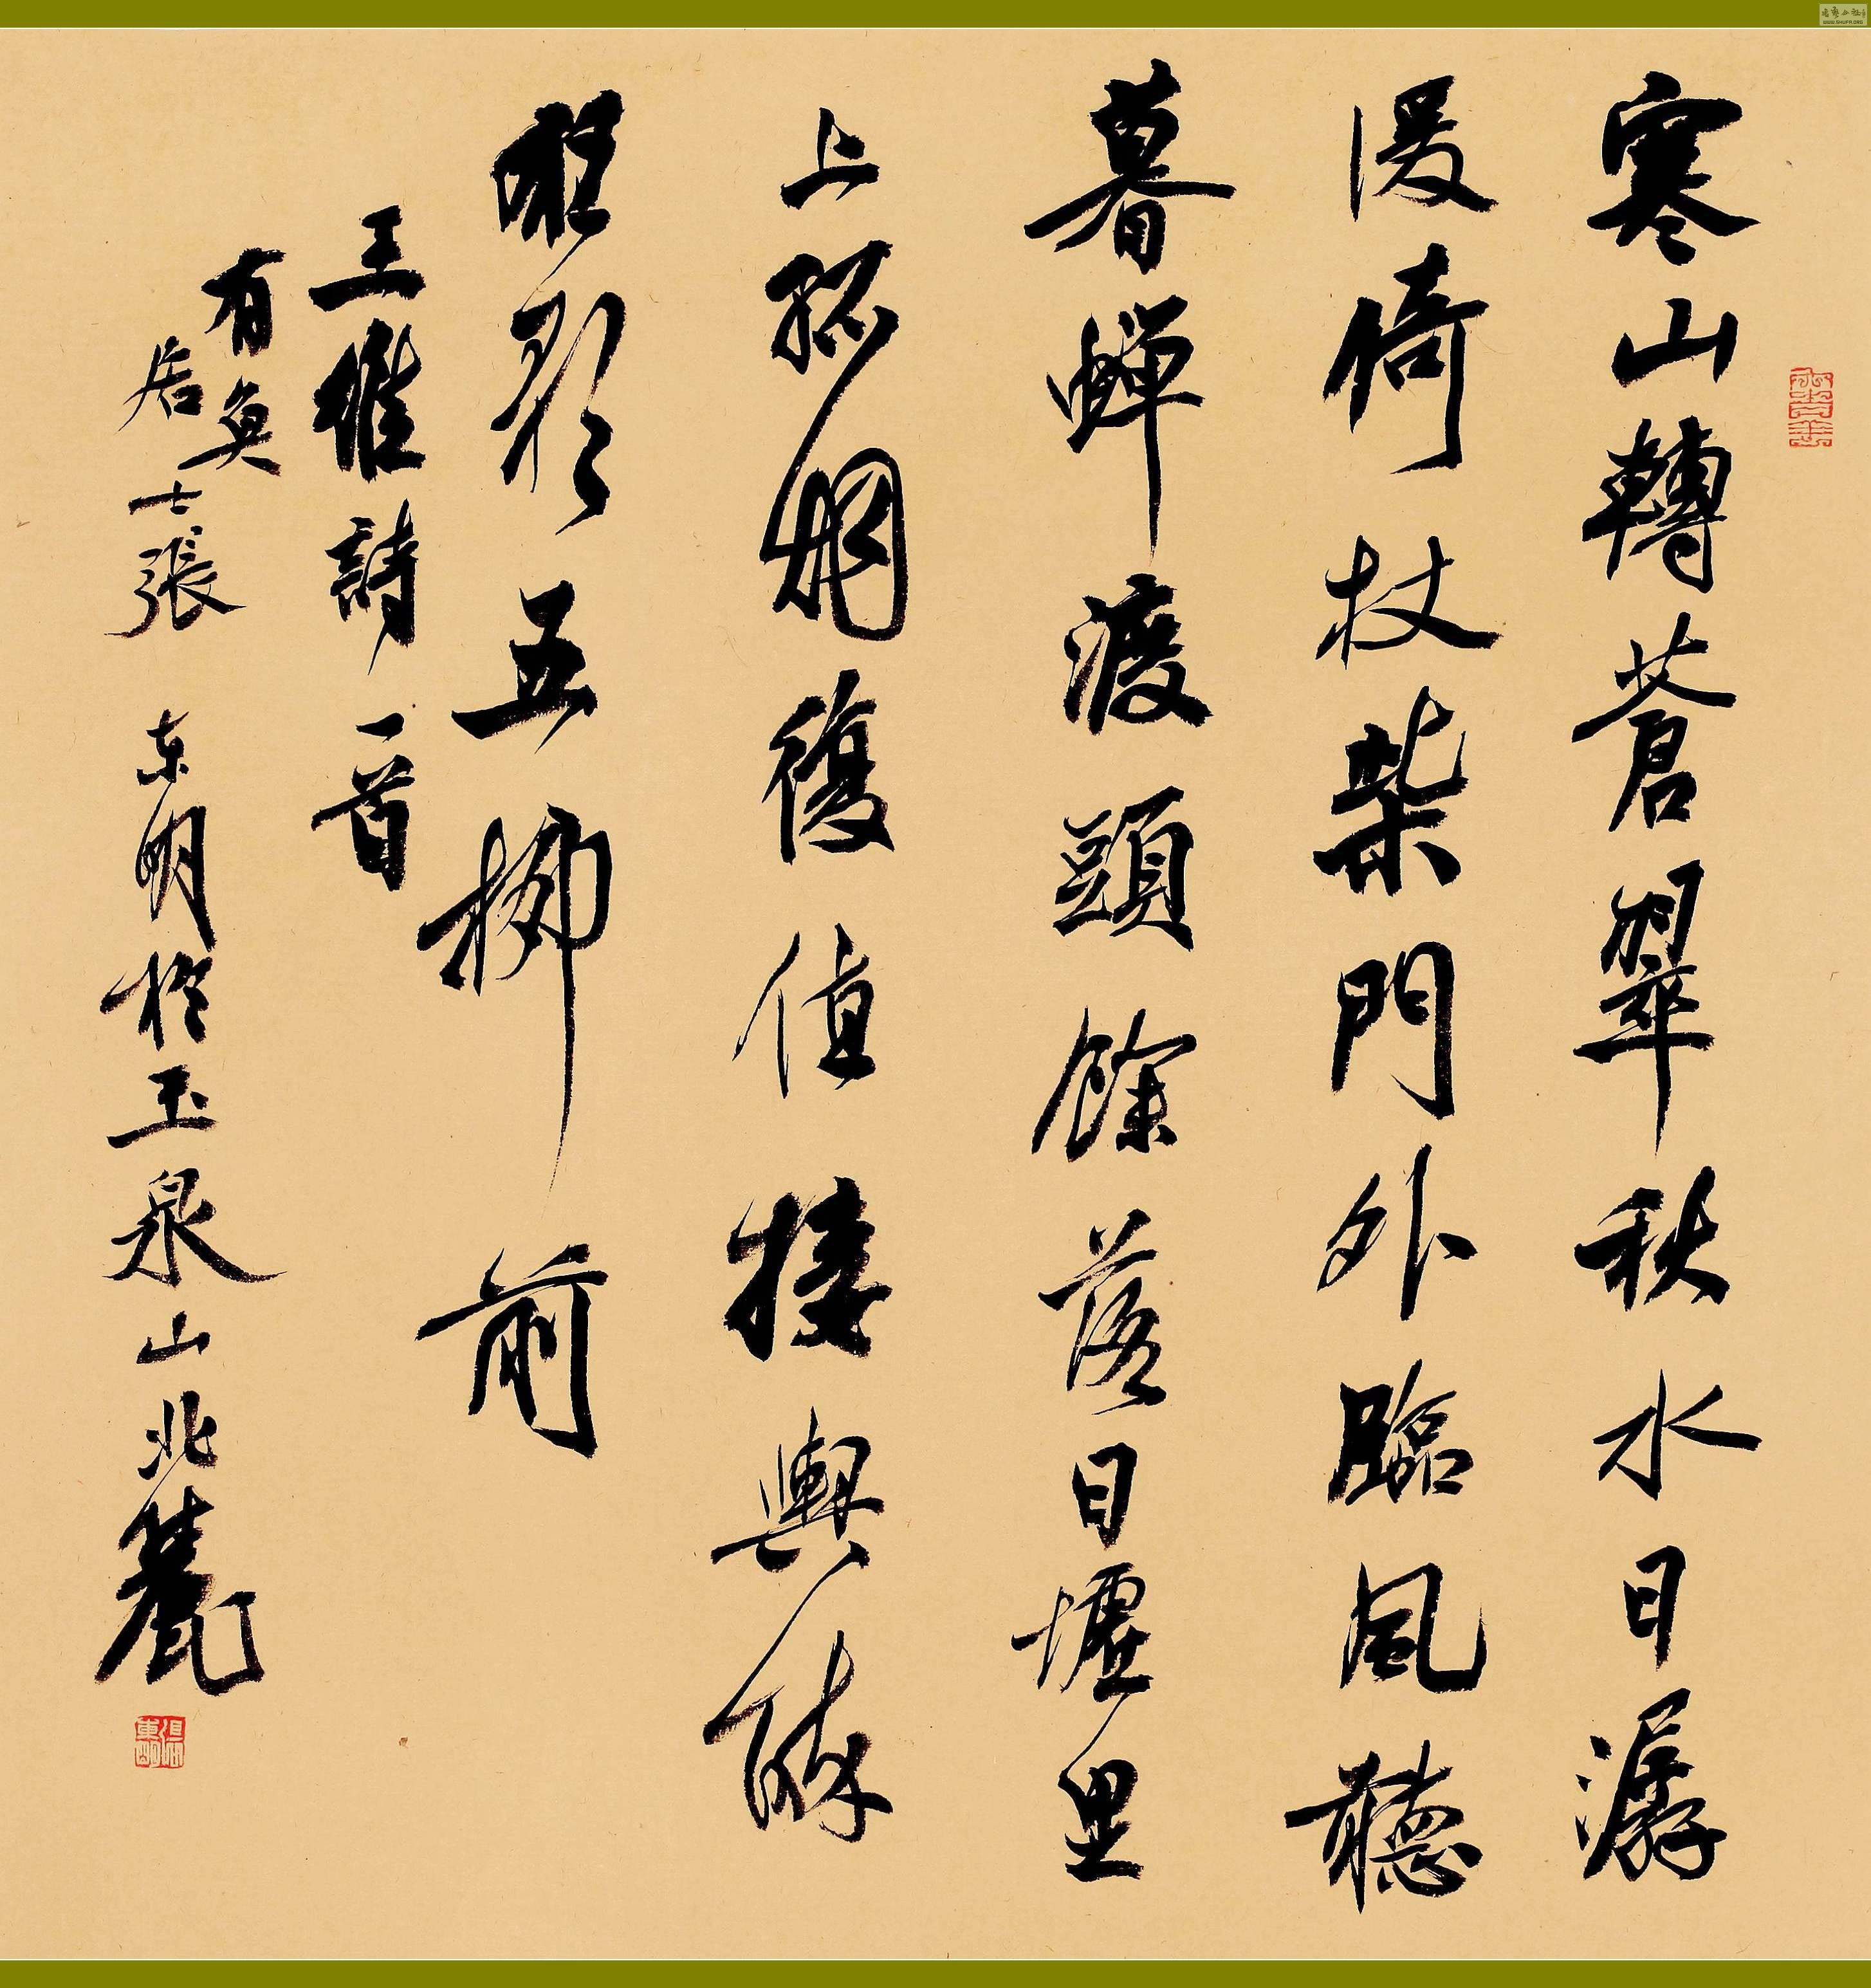 寒山轉蒼翠秋水日潺
湲倚杖柴門外臨風聽
暮蟬渡頭餘落日墟里
上孤烟復值接輿醉
狂歌五柳前
王維詩一首
有
居士張東明於玉泉山北麓
張東明